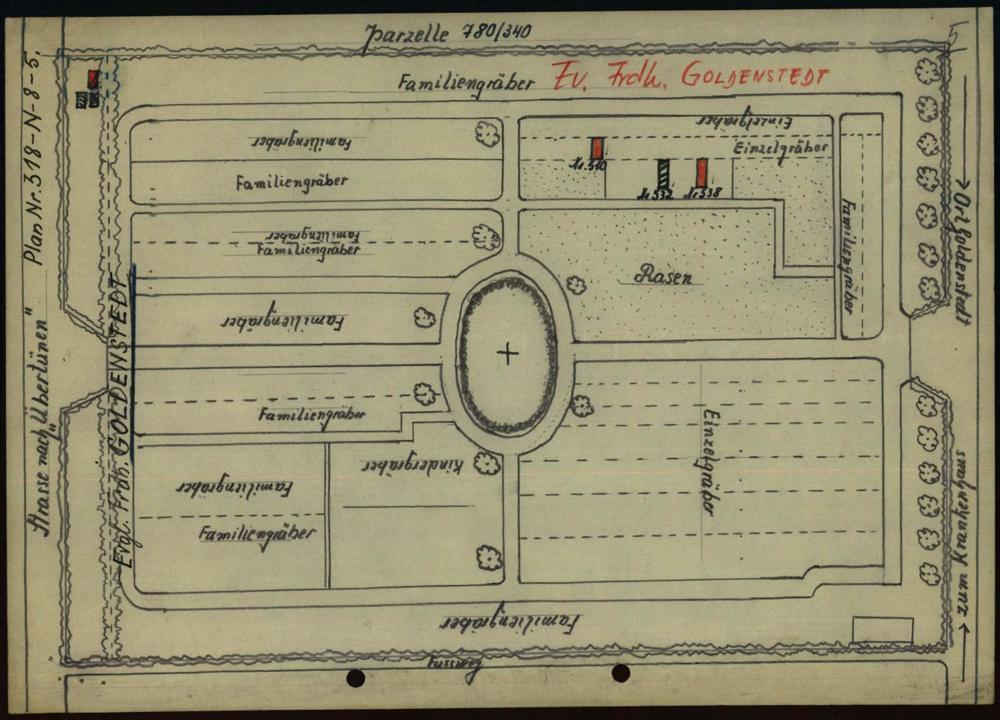 Parzelle 780/340
5
Familiengräber Ev. Frdh. GOLDENSTEDT
Plan Nr. 318-N-8-5.
Strasse nach „Überlünen"
Evgl. Frdh. GOLDENSTEDT
Familiengräber
Familiengräber
Einzelgräber
Einzelgräber
Nr. 510
Nr. 532
Nr. 538
Familiengräber
Familiengräber
Familiengräber
Rasen
→ Ort Goldenstedt
Familiengräber
Familiengräber
Kindergräber
Einzelgräber
Familiengräber
Familiengräber
zum Krankenhaus →
Familiengräber
Fussweg